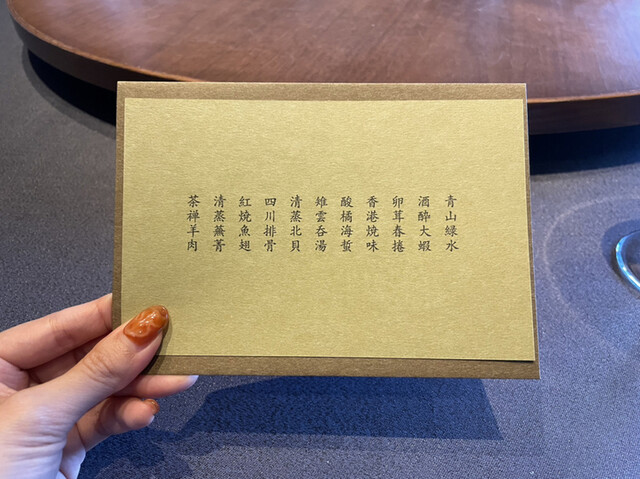 青山緑水
酒酔大蝦
卵茸春捲
香港焼味
酸橘海蜇
雉雲呑湯
清蒸北貝
四川排骨
紅焼魚翅
清蒸蕪菁
茶禅羊肉